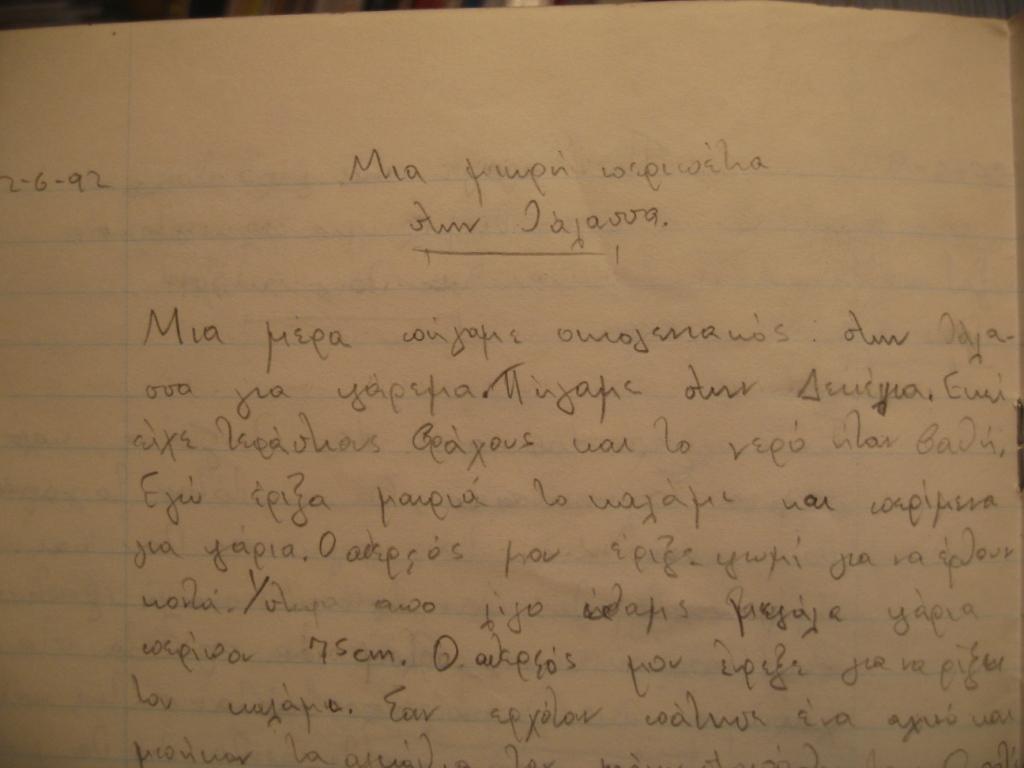 2-6-92
Μια μικρή περιπέτια
στην θάλασσα.
Μια μέρα πήγαμε οικογενιακός στην θάλα-
σσα για ψάρεμα. Πήγαμε στην Δεκέλια. Εκεί
είχε τεράστιους βράχους και το νερό ήταν βαθή.
Εγώ έριξα μακριά το καλάμι και περίμενα
για ψάρια. Ο αδερφός μου έριξε ψωμί για να έρθουν
κοντά. Ύστερα απο λίγο είδαμε μεγάλα ψάρια
περίπου 75cm. Ο αδερφός μου έτρεξε για να ρίξει
του καλάμι. Σαν ερχόταν πάτησε ένα αχινό και
μπήκαν τα αγκάθια